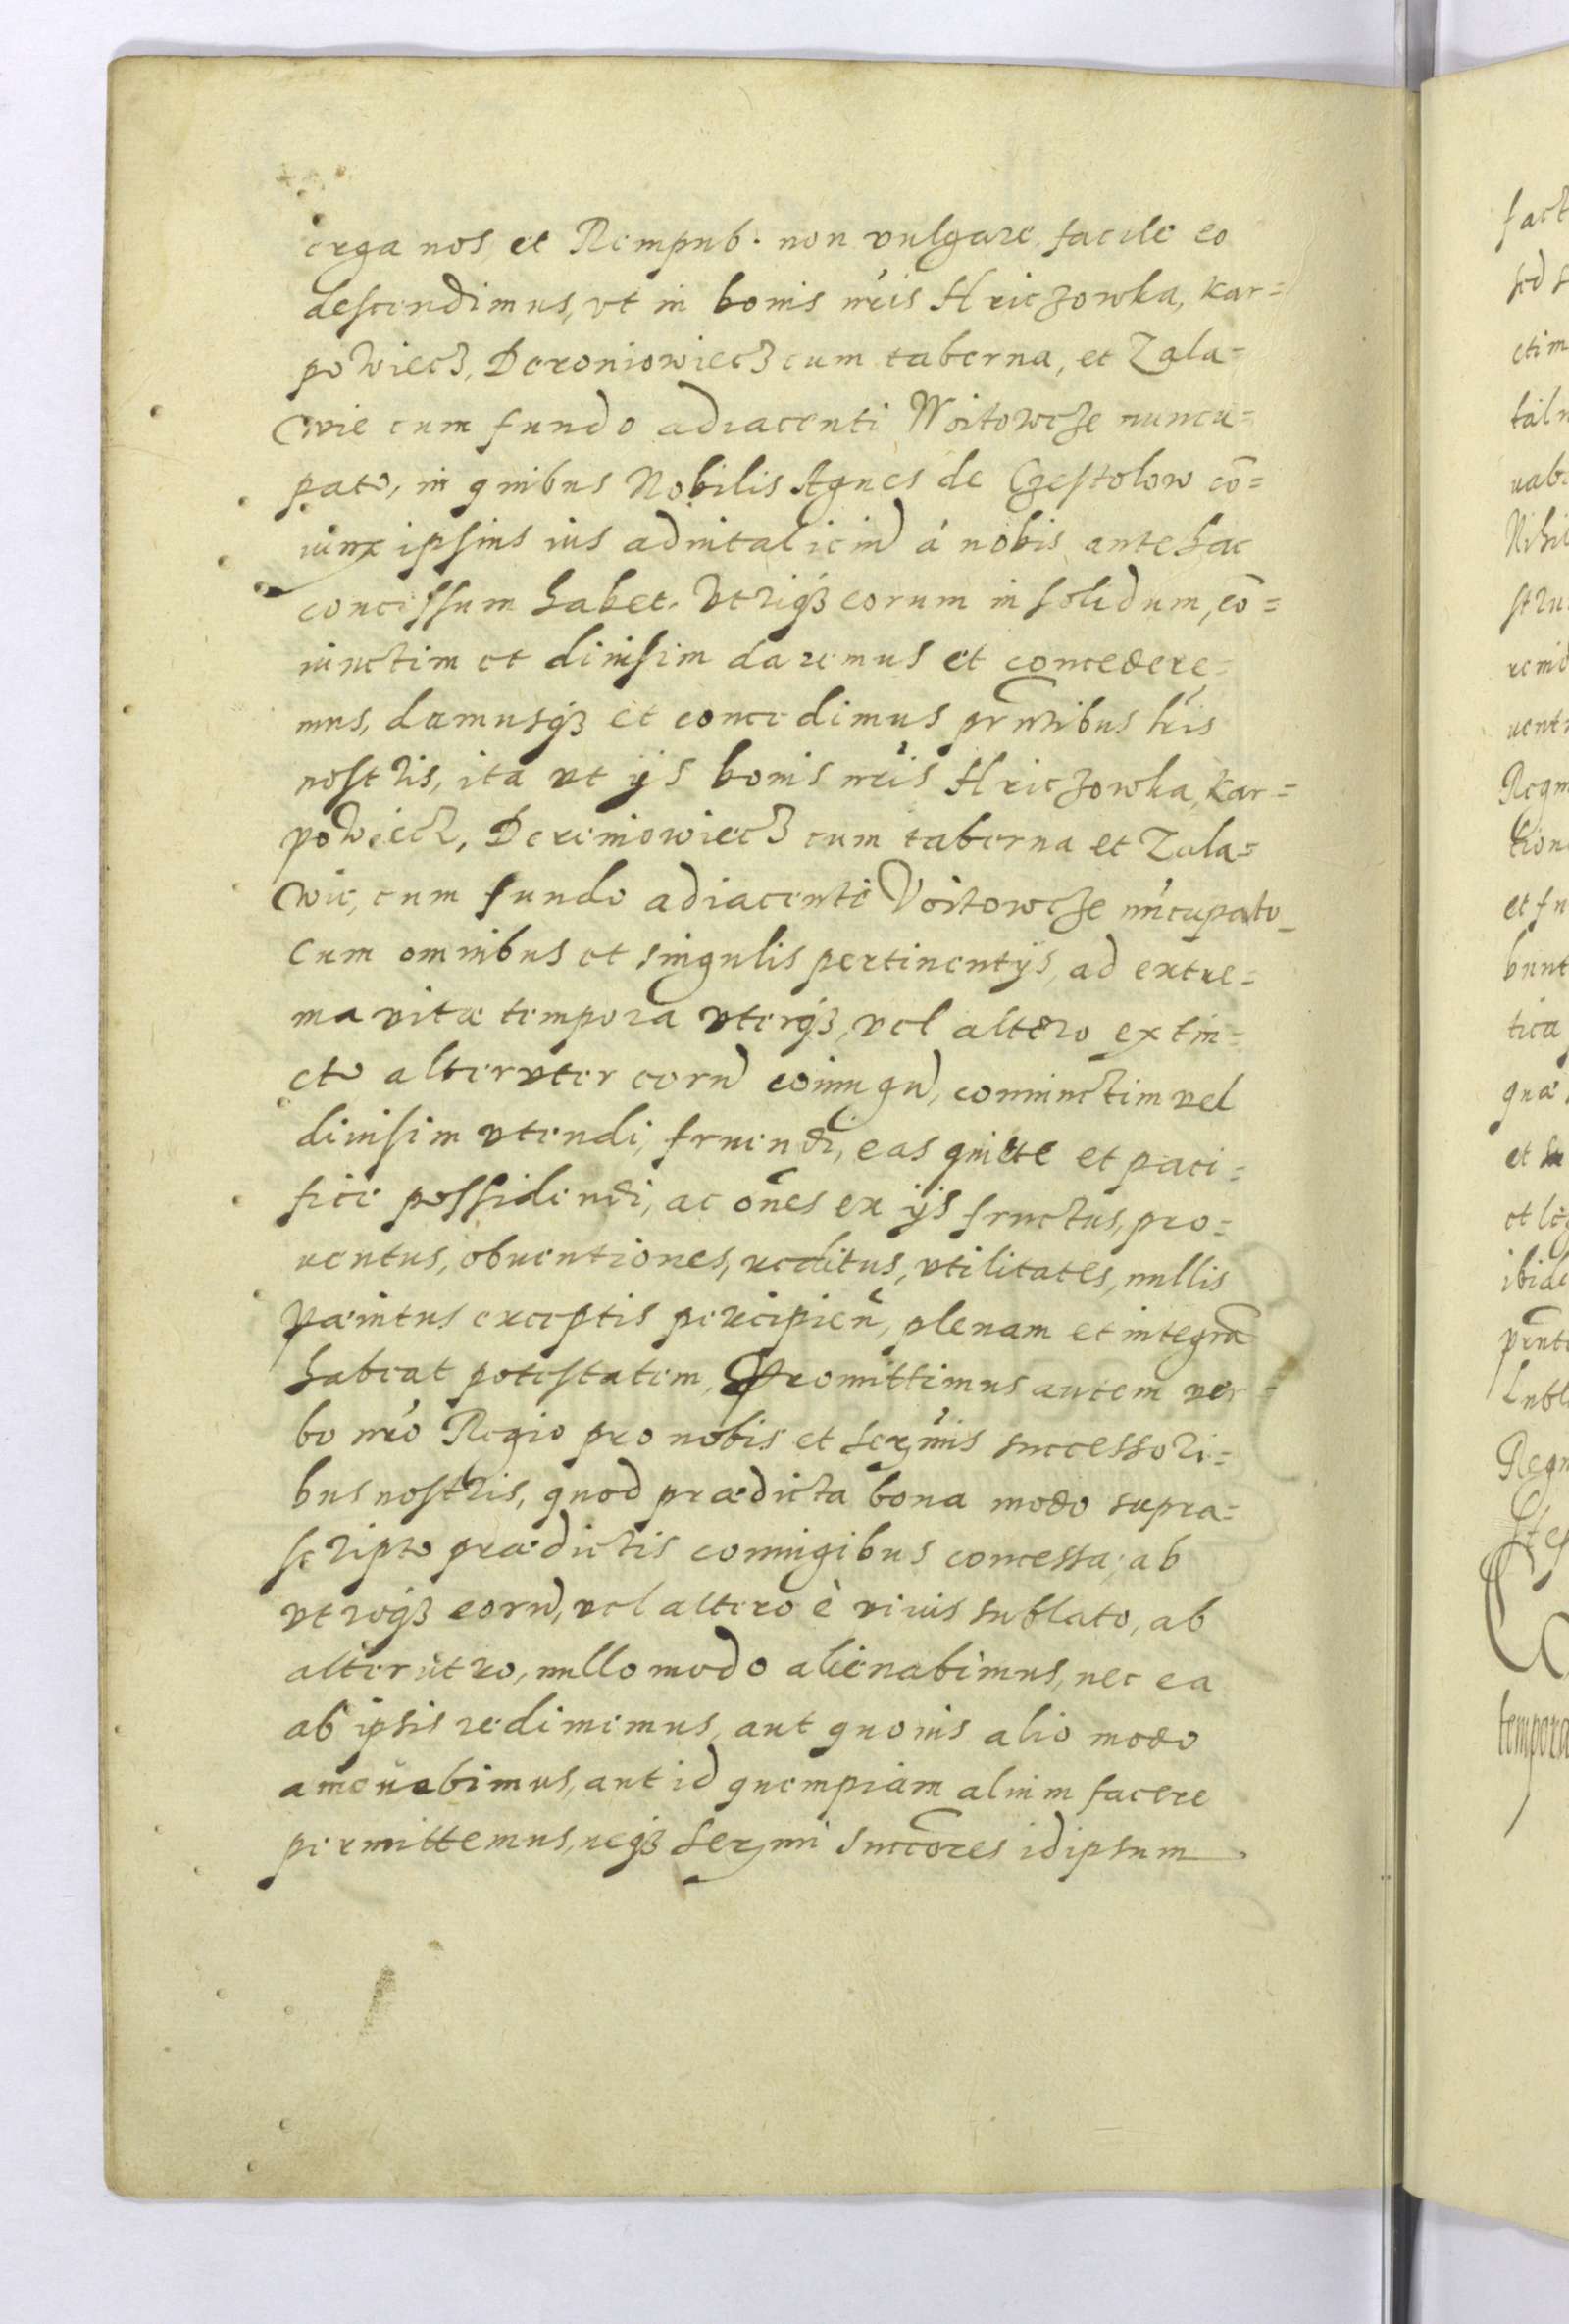 erga nos, et Rempub. non vulgare, facile eo
descendimus, vt in bonis nr̃is Hriczowka, Kar=
powiecz, Deroniowiecz cum taberna, et Zala=
wie cum fundo adiacenti Woitowcze nuncu=
pato, in quibus Nobilis Agnes de Czestolow cō=
iunx ipsius ius aduitaliciũ á nobis antehac
concessum habet. Vtriq3 eorum in solidum, cō=
iunctim et diuisim daremus et concedere=
mus, damusq3 et concedimus pr̃ntibus lr̃is
nostris, ita vt ijs bonis nr̃is Hriczowka, Kar=
powiecz, Dereniowiecz cum taberna et Zala=
wie, cum fundo adiacenti Voitowcze nũcupato
cum omnibus et singulis pertinentijs, ad extre=
ma vitæ tempora vterq3, vel altero extin=
cto alteruter eorũ coniugũ, coniunctim vel
diuisim vtendi, fruendi, eas quiete et paci=
fice possidendi, ac oñes ex ijs fructus, pro=
uentus, obuentiones, reditus, vtilitates, nullis
pænitus exceptis percipieñ, plenam et integrā
habeat potestatem, Promittimus autem ver=
bo nr̃o Regio pro nobis et Serm̃is successori=
bus nostris, quod prædicta bona modo supra=
scripto prædictis coniugibus concessa, ab
vtroq3 eorũ, vel altero è viuis sublato, ab
alterutro, nullo modo alienabimus, nec ea
ab ipsis redimemus, aut quouis alio modo
amouebimus, aut id quempiam alium facere
permittemus, neq3 Sermi Succōres idipsum